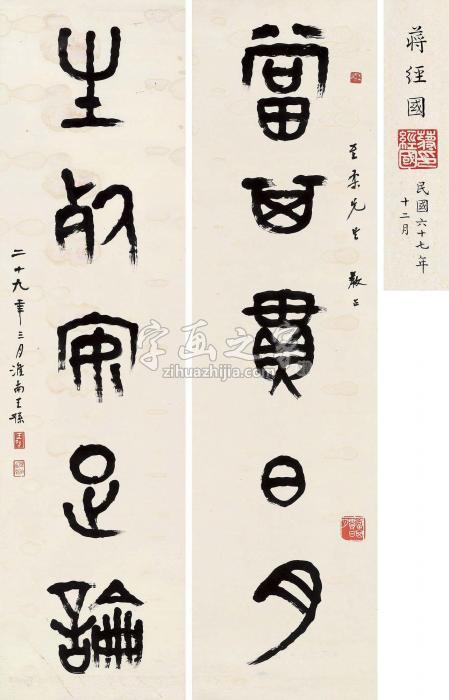 蔣經國
民國六十七年
十二月
當其貫日月
至柔先生 教正
生死安足論
二十九年三月淮南王孫
字画之家
zihuazhijia.com